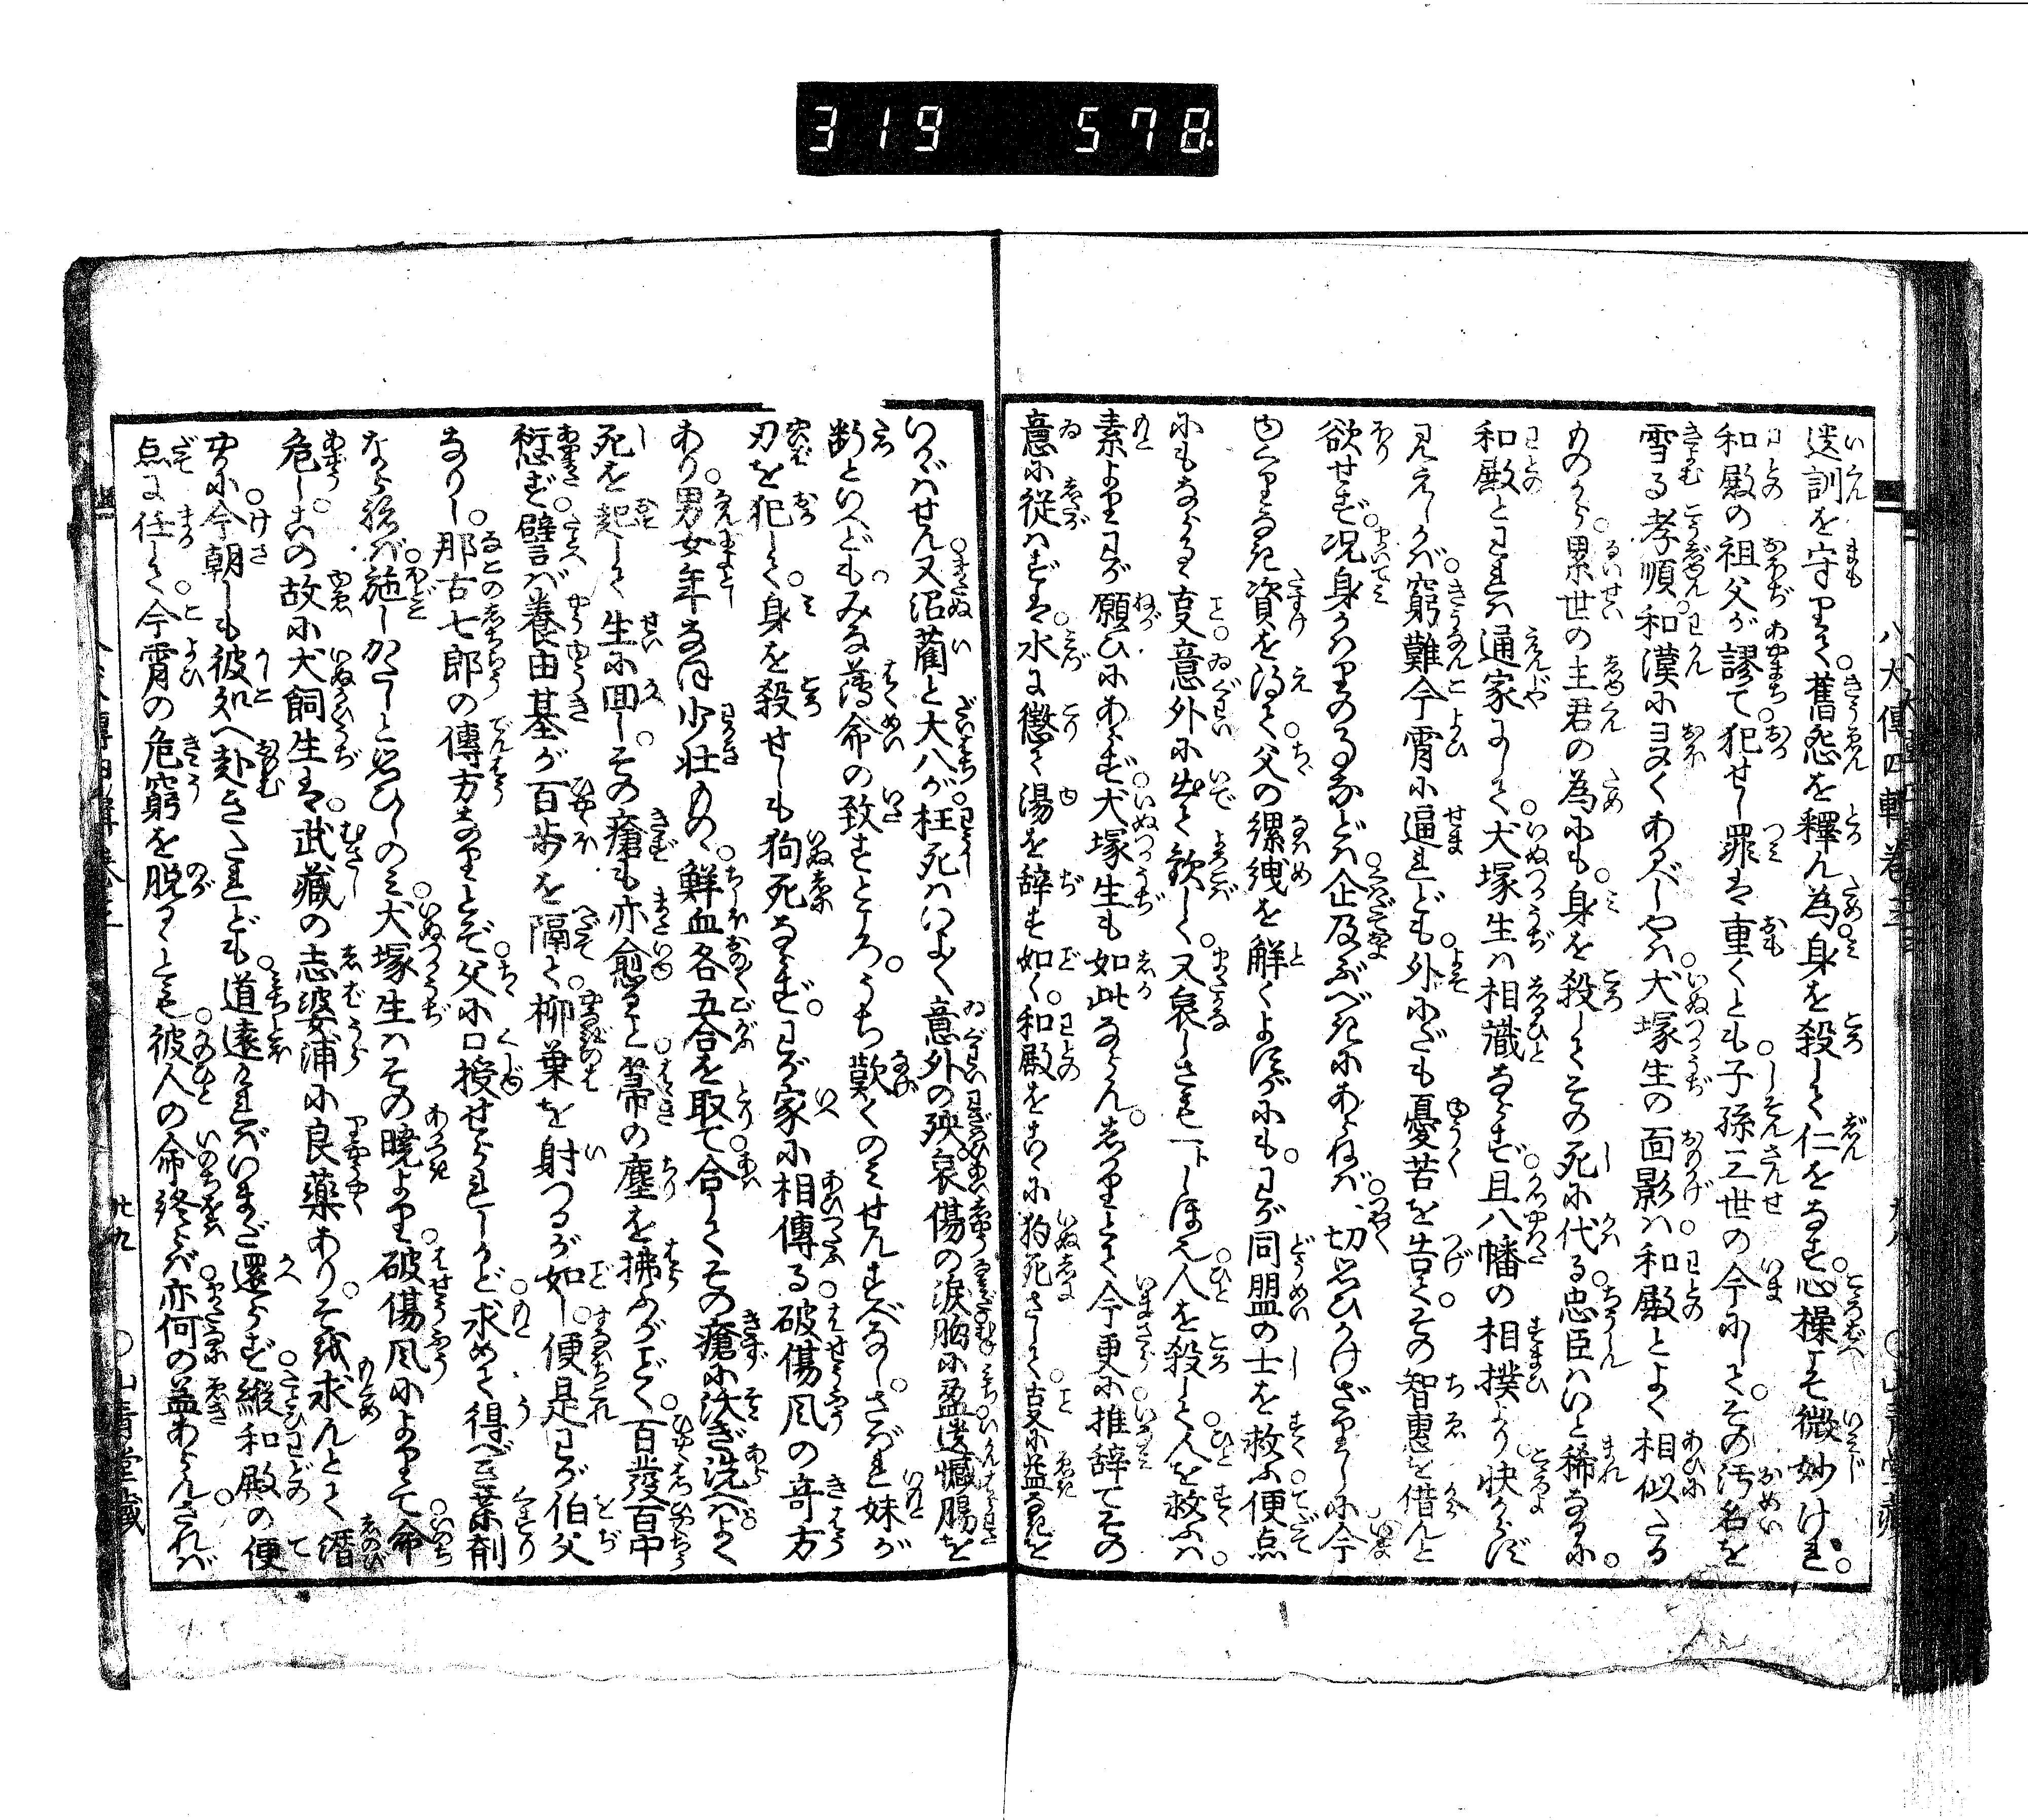 319 578
八犬傳四輯巻三
遺訓を守りて。舊怨を釋ん為。身を殺して仁をなす。心操こそ微妙けれ。
和殿の祖父が謬て。犯せし罪は重くとも。子孫三世の今にして。その汚名を
雪る孝順。和漢に多くあるべしやは。犬塚生の面影は。和殿とよく相似たる
ものから。累世の主君の為にも。身を殺してその死に代る。忠臣はいと稀なるに。
和殿とわれは通家にして。犬塚生は相識ならず。且八幡の相撲より快からず
見えしかば。窮難今宵に逼れども。外にだも憂苦を告て。その智惠を借んと
欲せず。况身がはりのるなどは。企及ぶべきにあらねば。切思ひかけざりしに今
ゆくりなき資を得て。父の縲絏を解くよすがにも。わが同盟の士を救ふ便点
にもなかる。㕝意外に出て歓し。又哀しさも一トしほ也。人を殺して。人を救ふは。
素よりわが願ひにあらず。犬塚生も如此ならん。しかりとて今更に。推辞てその
意に従はずは。水に懲て湯を辞す如く。和殿をこゝに狗死さして。㕝に益なきを
いかゞはせん。又沼藺と大八が枉死はいよゝ意外の殃。哀傷の涙胸に盈。遺憾腸を
断といへども。みな薄命の致すところ。うち歎くのみせんすべなし。さばれ妹が
刃を犯して。身を殺せしも狗死ならず。わが家に相傳る。破傷風の奇方
あり。男女年なほ少壮もの。鮮血各五合を取て。合してその瘡に沃ぎ洗へばよく
死を起して生に回し。その瘡も亦愈ること。箒の塵を拂ふがごとく。百發百中
愆ず。譬ば養由基が百歩を隔て。柳葉を射つるが如し。便是わが伯父
なりし。那古七郎の傳方なりとぞ。父に口授せられしかど。求めて得べき藥剤
ならねば。施しがたしと思ひしのみ。犬塚生はその曉より。破傷風によりて命
危し。この故に犬飼生は。武藏の志婆浦に良藥あり。そを求んとて潛
やかに今朝しも彼処へ赴きたれども。道遠ければいまだ還らず。縦和殿の便
点に任して。今宵の危窮を脱るゝとも。彼人の命終らば。亦何の益あらん。されば
廿九
山青堂藏